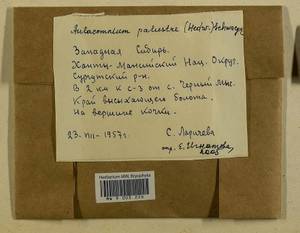 Aulacomnium palustre (Hedw.) Schwaegr.
Западная Сибирь.
Ханты-Мансийский Нац. Округ.
Сургутский р-н.
В 2 км к с-з от с. Черный Мыс.
Край высыхающего болота.
На вершине кочки.
23-VIII-1957г. С. Ларичева
опр. Е. Игнатова,
2003
Herbarium MW, Bryophyta